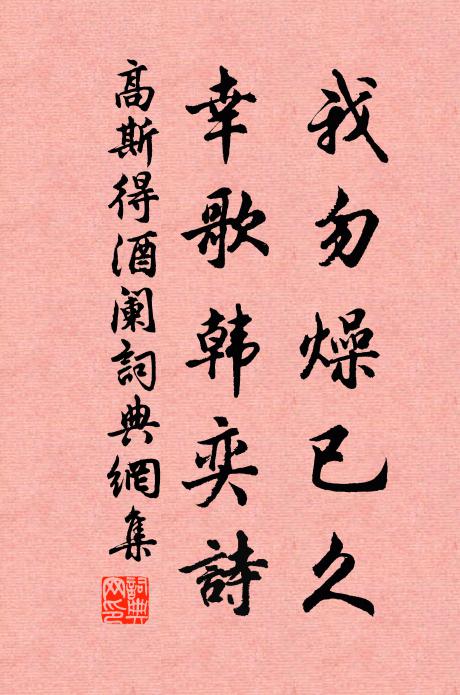 我勿燥已久
幸歌韩奕詩
高斯得酒阑詞典網集
詞典網印